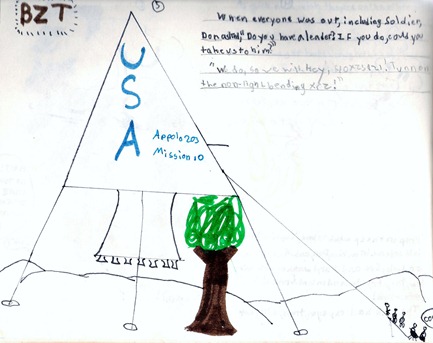 BZT
5
When everyone was out, including Soldier,
Don asked, "Do you have a leader? If you do, could you
take us to him?"
"We do, so we will hey,
the non-light bending
USA
Appolo 203
Mission 10